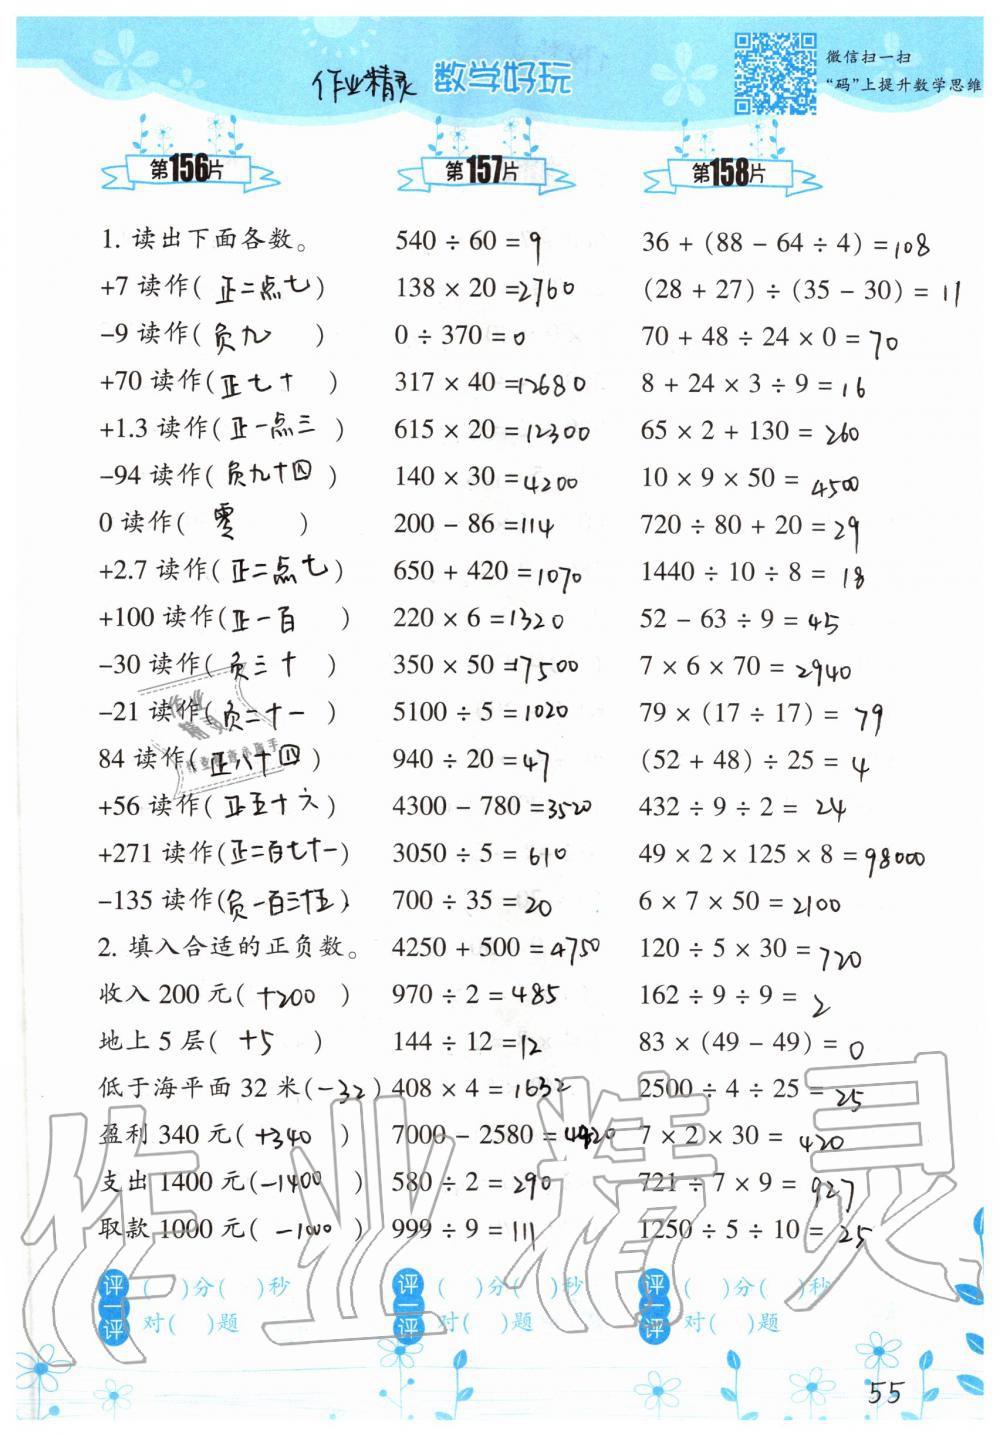 作业精灵 数学好玩
微信扫一扫
“码”上提升数学思维
第156片
1. 读出下面各数。
+7 读作( 正二点七 )
-9 读作( 负九 )
+70 读作( 正七十 )
+1.3 读作( 正一点三 )
-94 读作( 负九十四 )
0 读作( 零 )
+2.7 读作( 正二点七 )
+100 读作( 正一百 )
-30 读作( 负三十 )
-21 读作( 负二十一 )
84 读作( 正八十四 )
+56 读作( 正五十六 )
+271 读作( 正二百七十一 )
-135 读作( 负一百三十五 )
2. 填入合适的正负数。
收入 200 元( +200 )
地上 5 层( +5 )
低于海平面 32 米( -32 )
盈利 340 元( +340 )
支出 1400 元( -1400 )
取款 1000 元( -1000 )
评一评
( )分( )秒
对( )题
第157片
540 ÷ 60 = 9
138 × 20 = 2760
0 ÷ 370 = 0
317 × 40 = 12680
615 × 20 = 12300
140 × 30 = 4200
200 - 86 = 114
650 + 420 = 1070
220 × 6 = 1320
350 × 50 = 17500
5100 ÷ 5 = 1020
940 ÷ 20 = 47
4300 - 780 = 3520
3050 ÷ 5 = 610
700 ÷ 35 = 20
4250 + 500 = 4750
970 ÷ 2 = 485
144 ÷ 12 = 12
408 × 4 = 1632
7000 - 2580 = 4420
580 ÷ 2 = 290
999 ÷ 9 = 111
评一评
( )分( )秒
对( )题
第158片
36 + (88 - 64 ÷ 4) = 108
(28 + 27) ÷ (35 - 30) = 11
70 + 48 ÷ 24 × 0 = 70
8 + 24 × 3 ÷ 9 = 16
65 × 2 + 130 = 260
10 × 9 × 50 = 4500
720 ÷ 80 + 20 = 29
1440 ÷ 10 ÷ 8 = 18
52 - 63 ÷ 9 = 45
7 × 6 × 70 = 2940
79 × (17 ÷ 17) = 79
(52 + 48) ÷ 25 = 4
432 ÷ 9 ÷ 2 = 24
49 × 2 × 125 × 8 = 98000
6 × 7 × 50 = 2100
120 ÷ 5 × 30 = 720
162 ÷ 9 ÷ 9 = 2
83 × (49 - 49) = 0
2500 ÷ 4 ÷ 25 = 25
7 × 2 × 30 = 420
721 ÷ 7 × 9 = 927
1250 ÷ 5 ÷ 10 = 25
评一评
( )分( )秒
对( )题
作业精灵
作业检查小助手
作业精灵
55